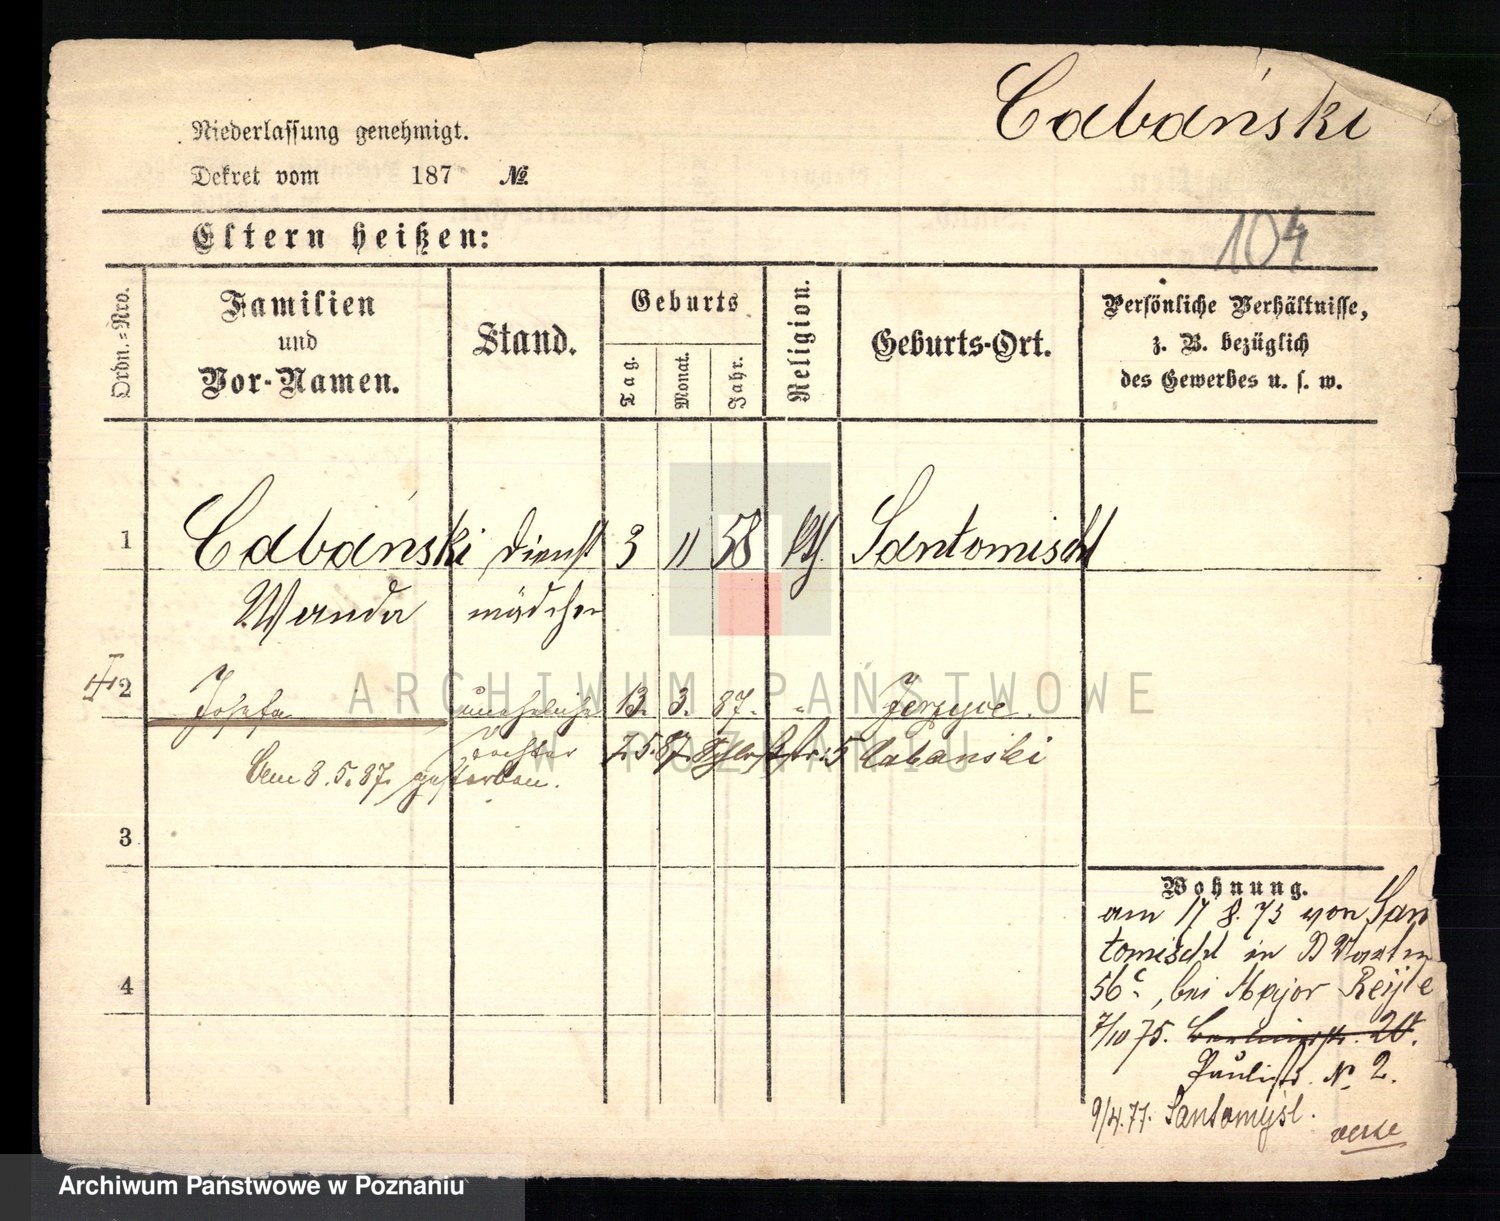 Cabański
Niederlassung genehmigt.
Dekret vom 187 №
104
Eltern heißen:
Ordn.=Nro.
Familien
und
Vor-Namen.
Stand.
Geburts
Tag.
Monat.
Jahr.
Religion.
Geburts-Ort.
Persönliche Verhältnisse,
z. B. bezüglich
des Gewerbes u. s. w.
1 Cabański Dienst 3 11 58 kth. Santomischl
Wanda mädchen
2 Josefa uneheliche 13. 3. 87. " Jerzyce.
Tochter 2.5.87. Schloßstr. 5 Cabanski
am 8.5.87. gestorben.
3
4
Wohnung.
am 17 8. 73 von San
tomischl in
56c, bei Major
7/10 75. Berlinerstr. 20.
Paulist. N. 2.
9/4.77. Santomysl.
verte
ARCHIWUM PAŃSTWOWE
W POZNANIU
Archiwum Państwowe w Poznaniu